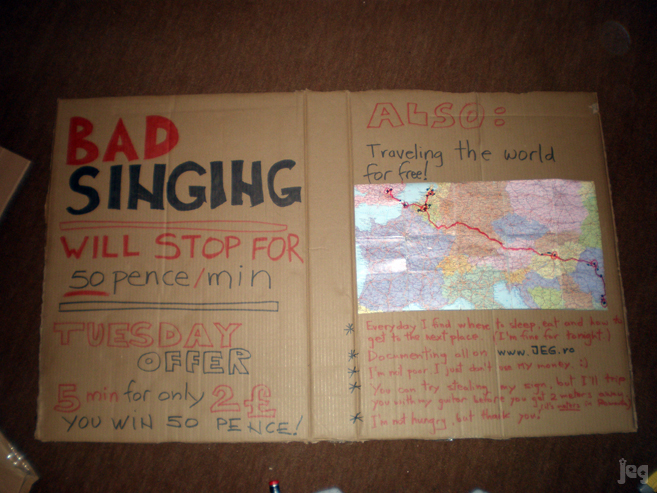 BAD
SINGING
WILL STOP FOR
50 pence/min
TUESDAY
OFFER
5 min for only 2£
YOU WIN 50 PENCE!
ALSO:
Traveling the world
for free!
* Everyday I find where to sleep, eat and how to
get to the next place. (I'm fine for tonight.)
* Documenting all on www.JEG.ro
* I'm not poor. I just don't use my money. :)
* You can try stealing my sign, but I'll trip
you with my guitar before you get 2 meters away
* I'm not hungry, but thank you!
jeg